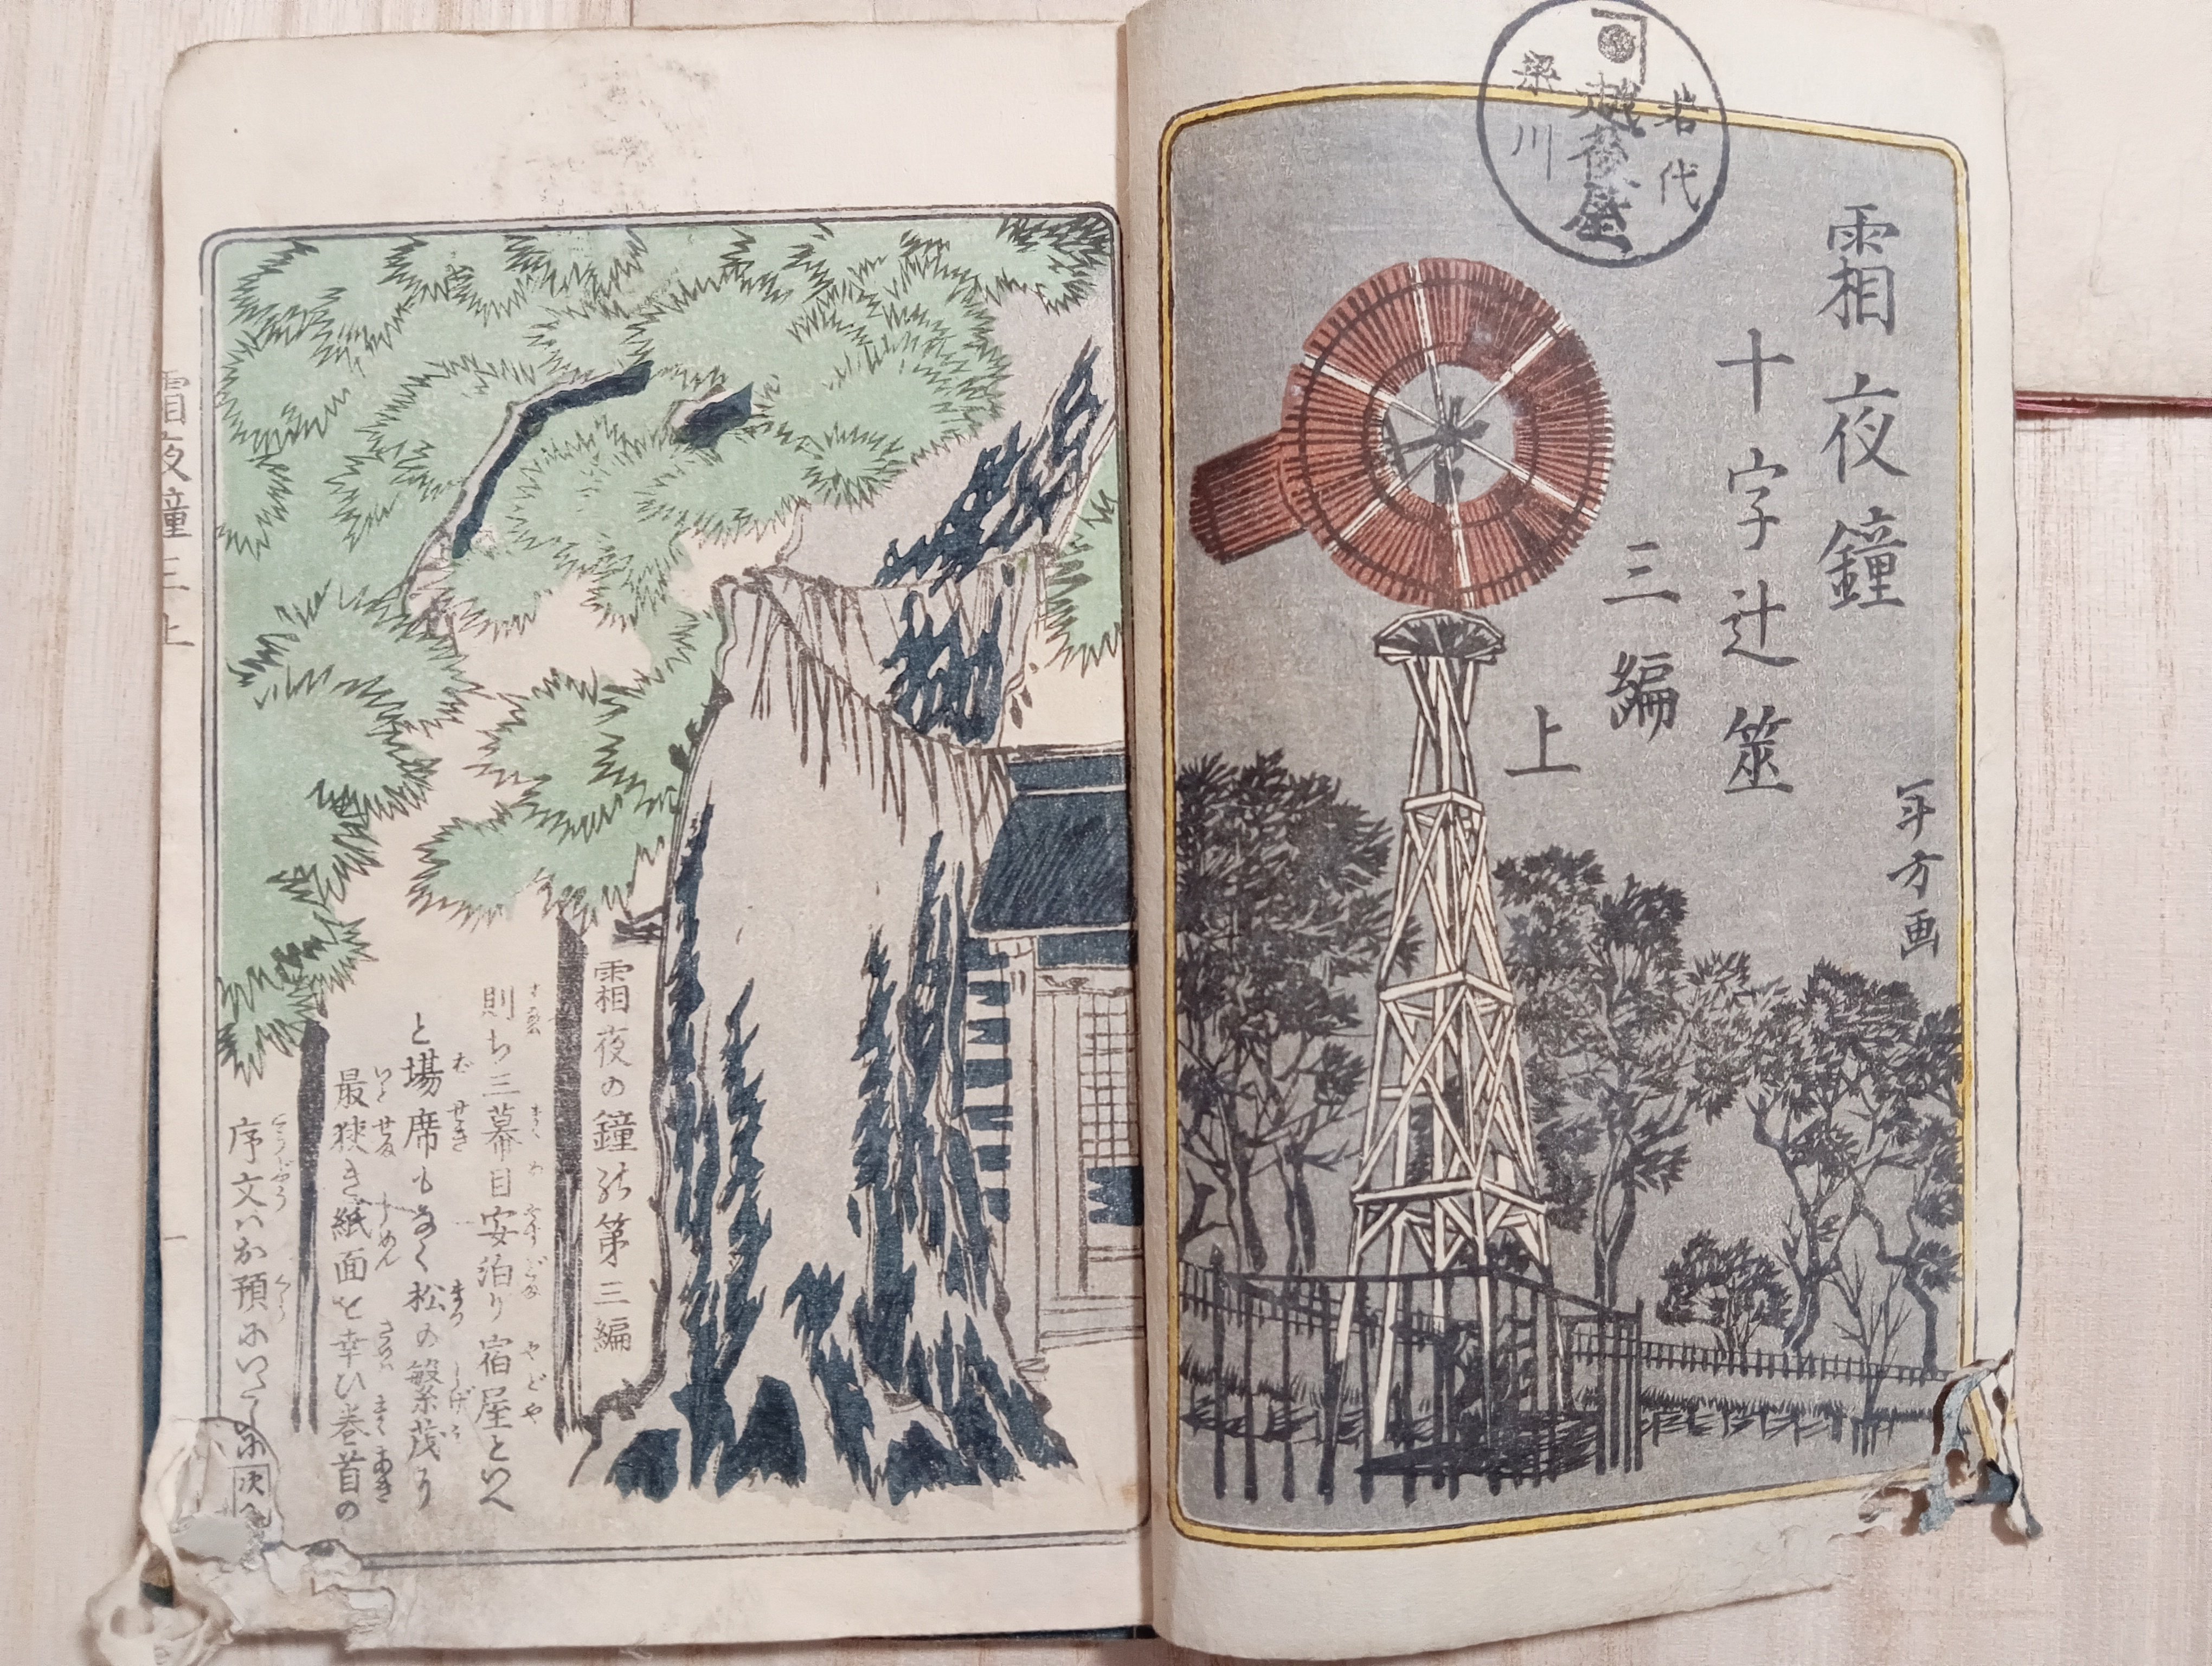 霜夜鐘
十字辻筮
三編
上
年方画
岩代
越後屋
梁川
霜夜の鐘能第三編
則ち三幕目安泊り宿屋といへ
と場席もなく松の繁茂り
最狭き紙面を幸ひ巻首の
序文ハお預にいたし
次へ
霜夜鐘三上
一